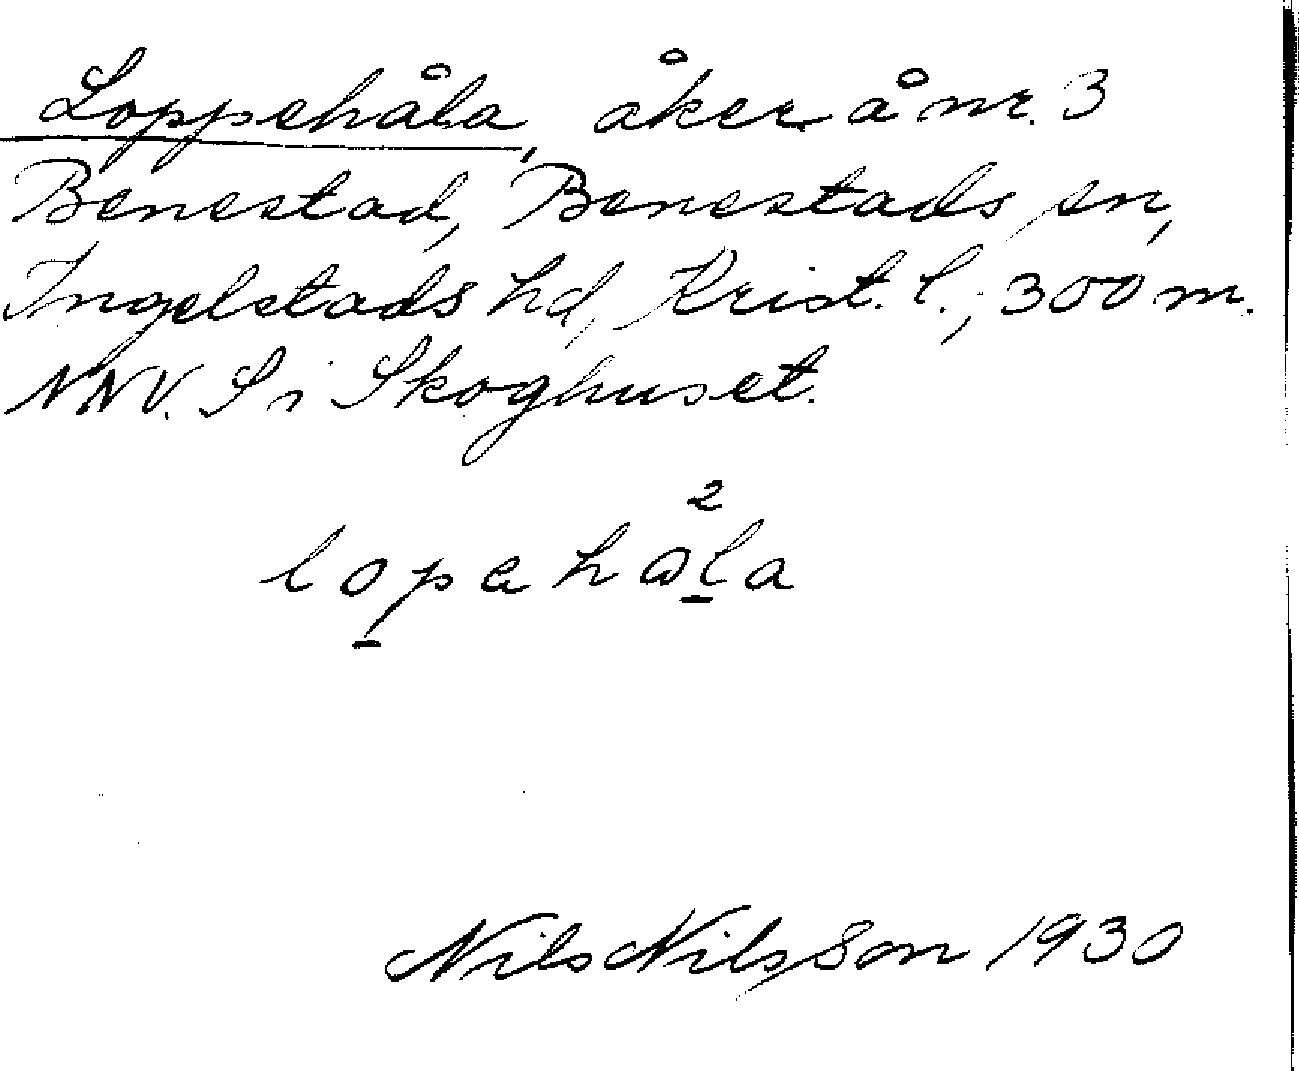 Loppehåla, åker å nr. 3
Benestad, Benestads sn,
Ingelstads hd, Krist. l.; 300 m.
NNV. S i Skoghuset.
2
lopehåla
Nils Nilsson 1930